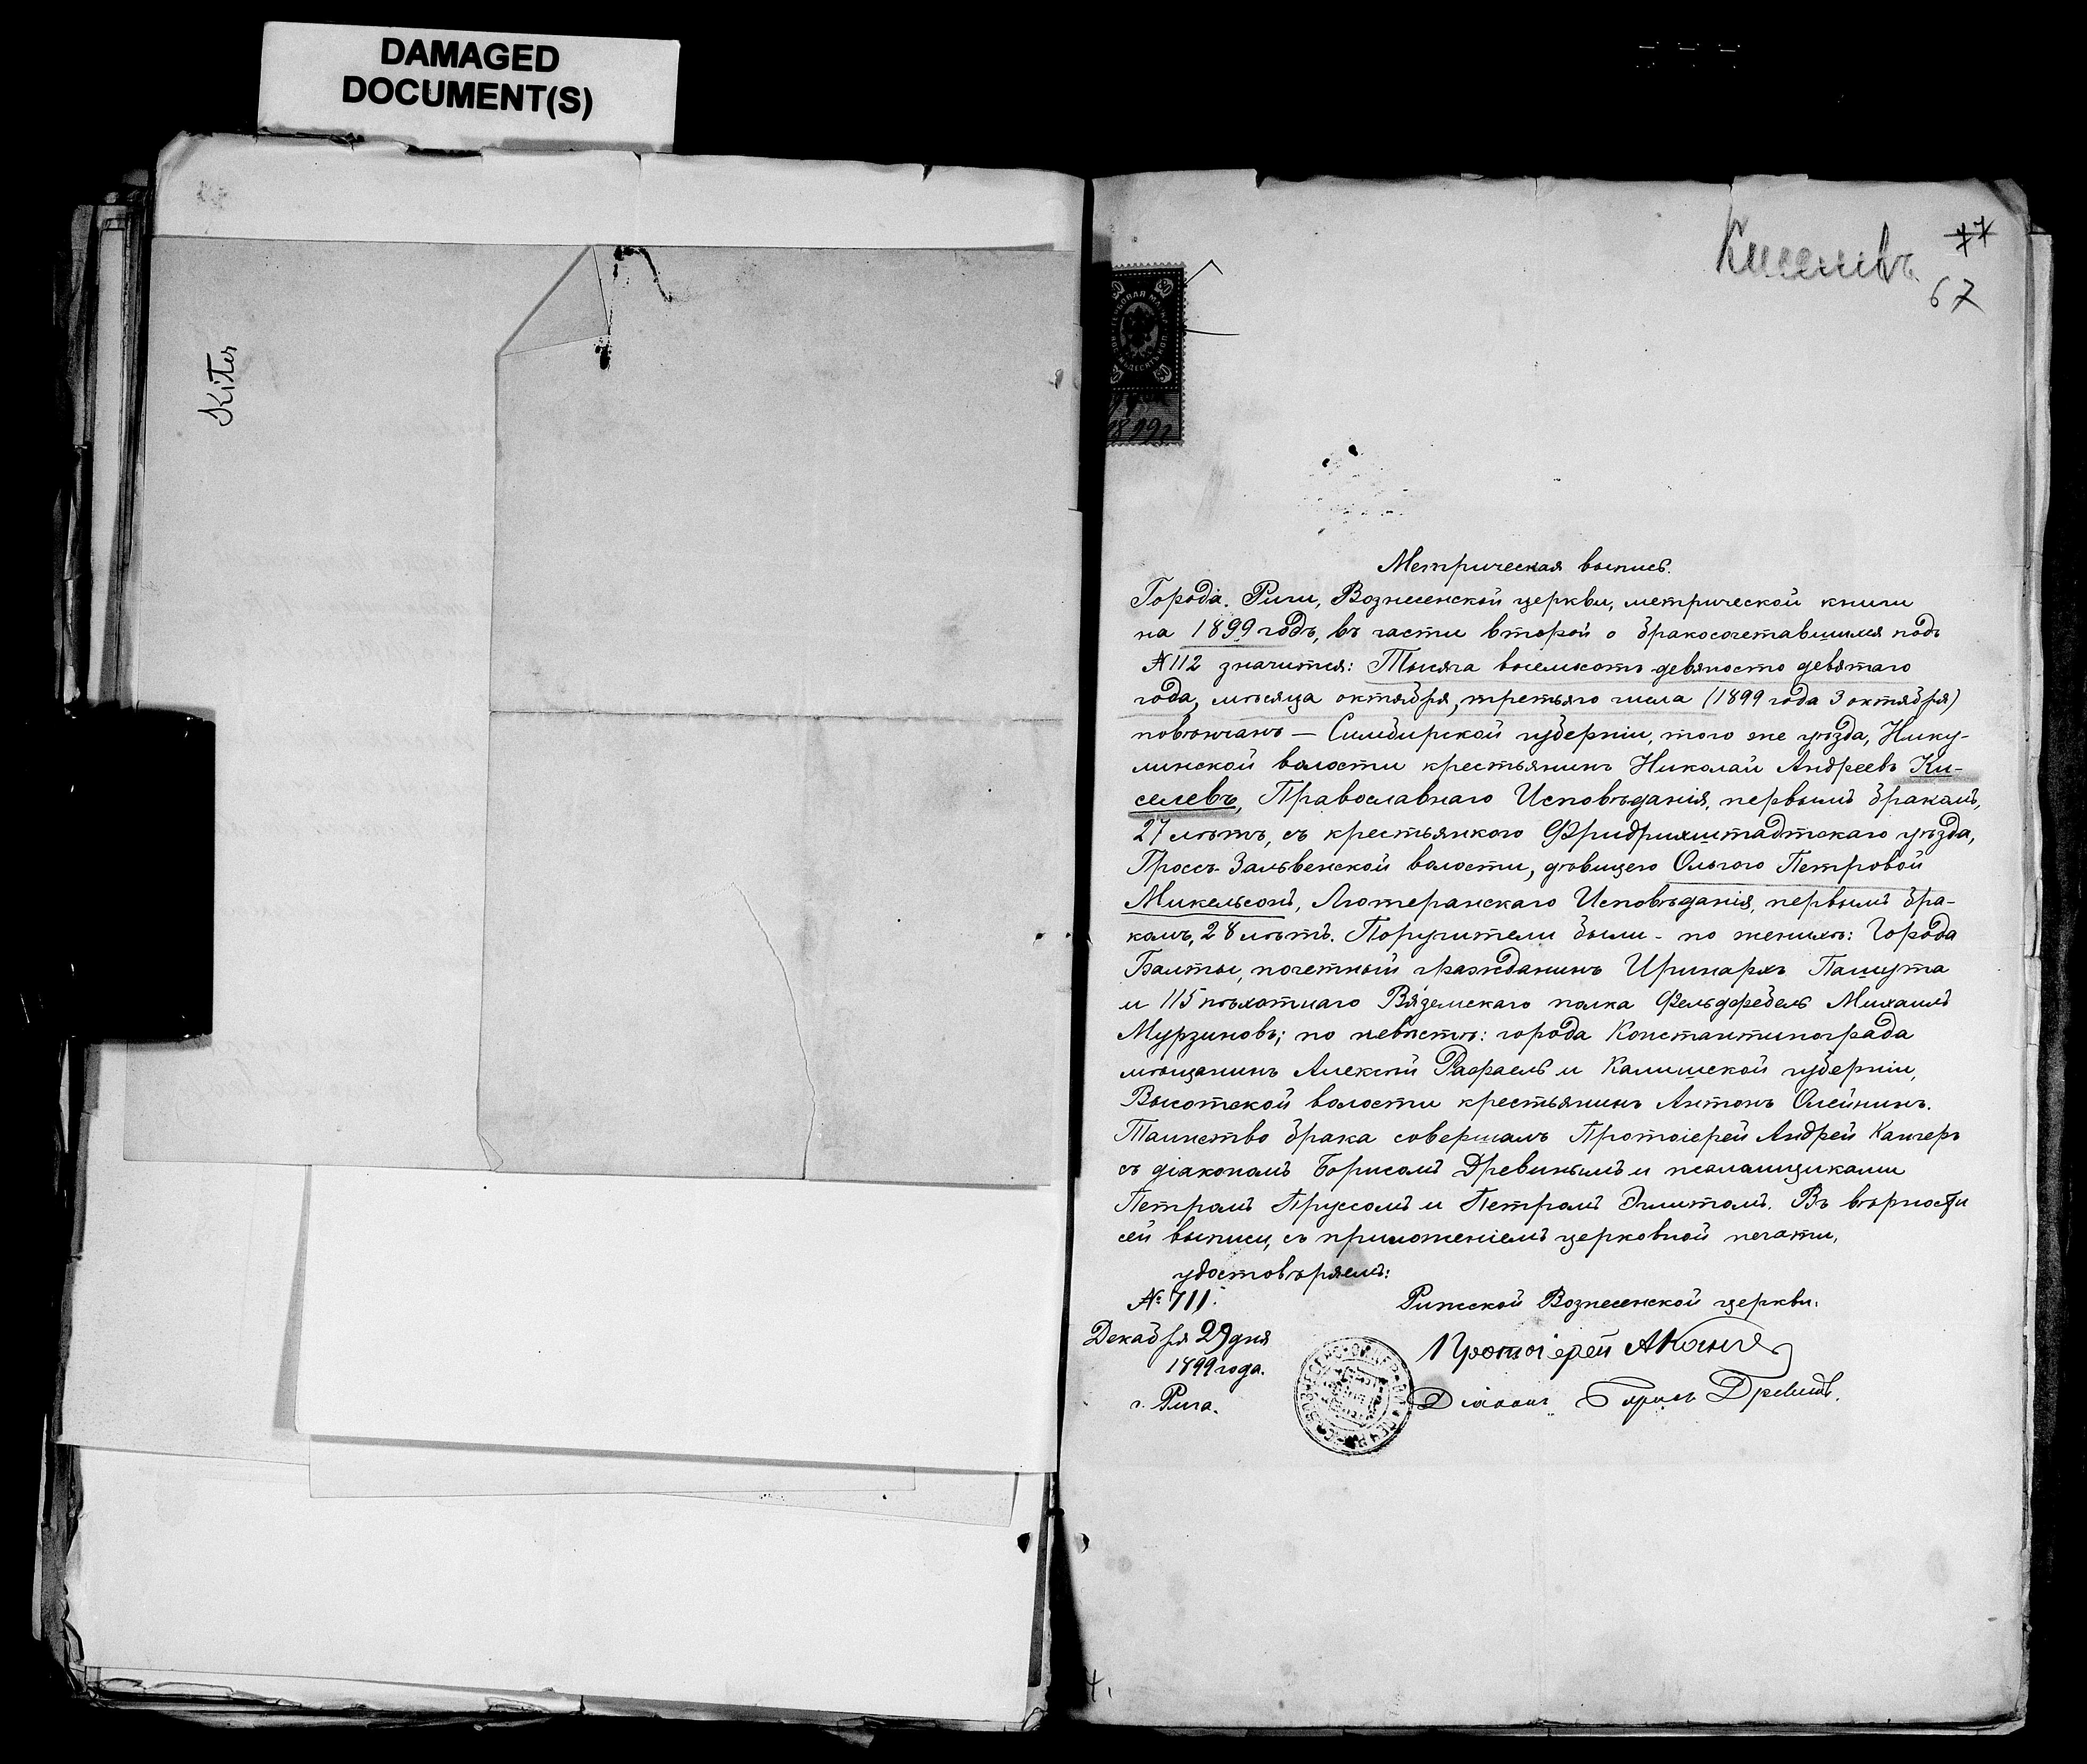 DAMAGED
DOCUMENT(S)
Kiter
Киселевъ
77
67
Метрическая выпись.
Города Риги, Вознесенской церкви, метрической книги
на 1899 годъ, въ части второй о бракосочетавшихся подъ
№ 112 значится: Тысяча восемьсотъ девяносто девятаго
года, мѣсяца октября, третьяго числа (1899 года 3 октября)
повѣнчанъ — Симбирской губерніи, того же уѣзда, Нику-
линской волости крестьянинъ Николай Андреевъ Ки-
селевъ, Православнаго Исповѣданія, первымъ бракомъ,
27 лѣтъ, съ крестьянкою Фридрихштадтскаго уѣзда,
Гроссъ-Зальвенской волости, дѣвицею Ольгою Петровой
Микельсонъ, Лютеранскаго Исповѣданія, первымъ бра-
комъ, 28 лѣтъ. Поручители были - по женихѣ: Города
Балты, почетный гражданинъ Иринархъ Пашута
и 115 пѣхотнаго Вяземскаго полка Фельдфебель Михаилъ
Мурзиновъ; по невѣстѣ: города Константинограда
мѣщанинъ Алексѣй Рафаель и Калишской губерніи,
Высотской волости крестьянинъ Антонъ Олейникъ.
Таинство брака совершалъ Протоіерей Андрей Кангеръ
съ діакономъ Борисомъ Древинымъ и псаломщиками
Петромъ Пруссомъ и Петромъ Эплитомъ. Въ вѣрности
сей выписи, съ приложеніемъ церковной печати,
удостовѣряемъ:
№ 711.
Рижской Вознесенской церкви:
Декабря 29 дня
1899 года.
г. Рига.
Протоіерей А Кангеръ
Діаконъ Борисъ Древинъ.